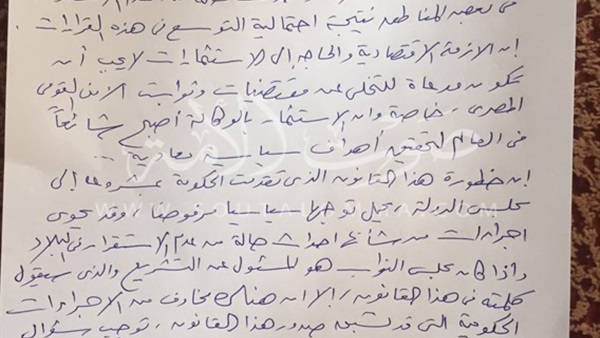 في بعض المناطق نتيجة احتمالية التوسع في هذه القرارات.
إن الازمة الاقتصادية والحاجه إلى الاستثمارات لا يجب أن
تكون مدعاة للتخلي عن مقتضيات وثوابت الأمن القومي
المصري، خاصة وان الاستثمار بالوكالة أصبح شائعاً
في العالم لتحقيق أهداف سياسية معادية ...
إن خطورة هذا القانون الذي تقدمت الحكومة بمشروعه إلى
مجلس الدولة، يمثل توجها سياسيا مرفوضا، وقد يحوي
اجراءات من شأنها احداث حالة من عدم الاستقرار في البلاد
واذا كان مجلس النواب هو المسئول عن التشريع والذي سيقول
كلمته في هذا القانون، إلا ان هناك مخاوف من الاجراءات
الحكومية التي قد تسبق صدور هذا القانون، توجب سؤال
صوت الأمة
WWW.SOUTALOMMA.COM